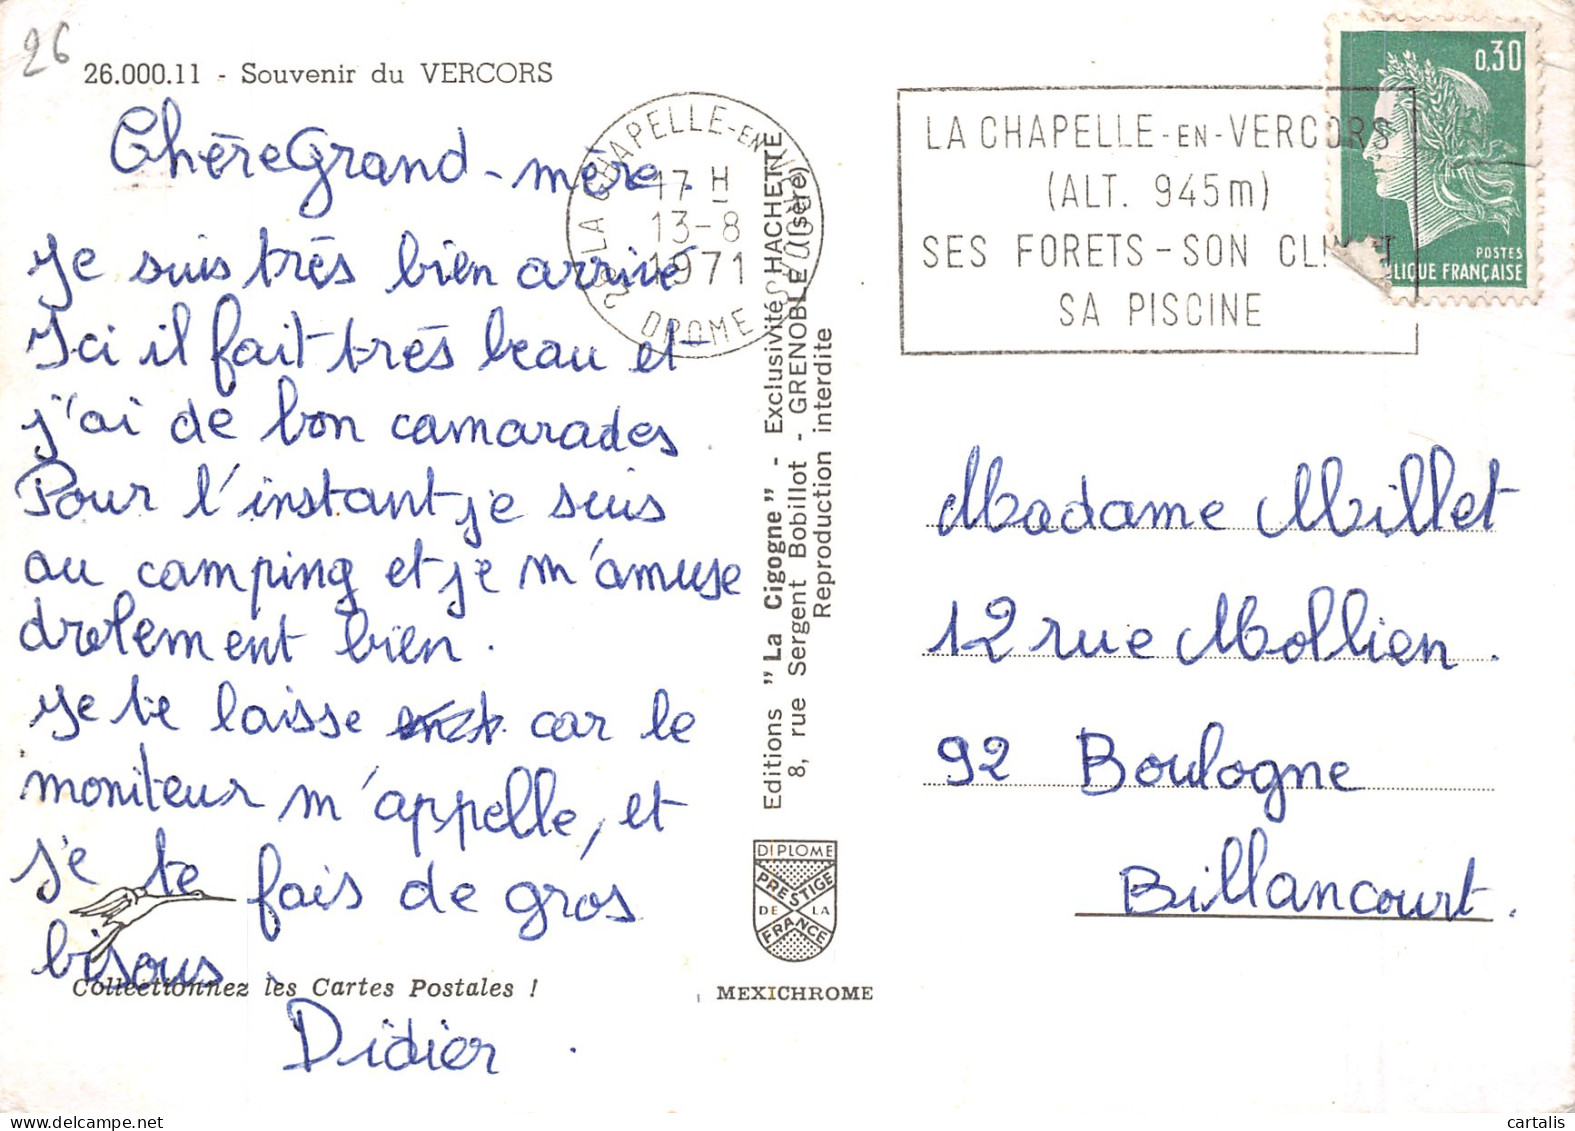 26
26.000.11 - Souvenir du VERCORS
Chère Grand-mère.
Je suis très bien arrivé
Ici il fait très beau et
j'ai de bon camarades
Pour l'instant je suis
au camping et je m'amuse
drolement bien.
Je te laisse car le
moniteur m'appelle, et
je te fais de gros
bisous.
Collectionnez les Cartes Postales !
Didier.
26 LA CHAPELLE-EN-VERCORS
17 H
13-8
1971
DROME
Editions "La Cigogne" - Exclusivité HACHETTE
8, rue Sergent Bobillot - GRENOBLE (Isère)
Reproduction interdite
DIPLOME
PRESTIGE
DE LA
FRANCE
MEXICHROME
LA CHAPELLE-EN-VERCORS
(ALT. 945m)
SES FORETS - SON CLIMAT
SA PISCINE
0,30
POSTES
LIQUE FRANÇAISE
Madame Millet
12 rue Mollien.
92 Boulogne
Billancourt.
cartalis
www.delcampe.net